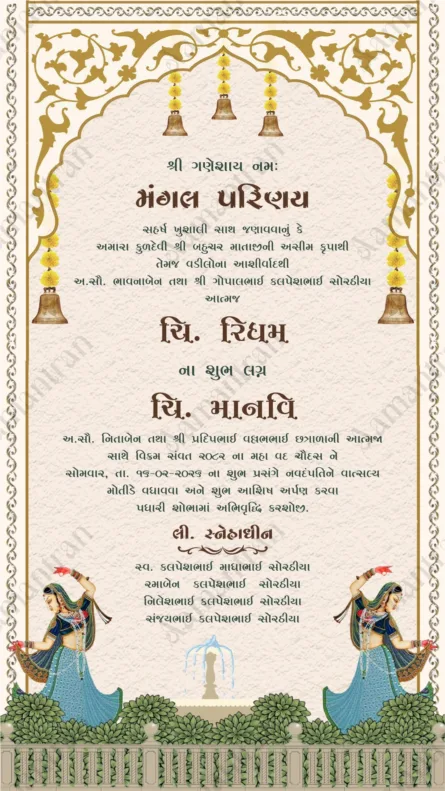 શ્રી ગણેશાય નમઃ
મંગલ પરિણય
સહર્ષ ખુશાલી સાથ જણાવવાનું કે
અમારા કુળદેવી શ્રી બહુચર માતાજીની અસીમ કૃપાથી
તેમજ વડીલોના આશીર્વાદથી
અ.સૌ. ભાવનાબેન તથા શ્રી ગોપાલભાઈ કલપેશભાઈ સોરઠીયા
આત્મજ
ચિ. રિધમ
ના શુભ લગ્ન
ચિ. માનવિ
અ.સૌ. નિતાબેન તથા શ્રી પ્રદિપભાઈ વલ્લભભાઈ છત્રાળાની આત્મજા
સાથે વિક્રમ સંવત ૨૦૮૨ ના મહા વદ ચૌદસ ને
સોમવાર, તા. ૧૬-૦૨-૨૦૨૬ ના શુભ પ્રસંગે નવદંપતિને વાત્સલ્ય
મોતીડે વધાવવા અને શુભ આશિષ અર્પણ કરવા
પધારી શોભામાં અભિવૃદ્ધિ કરશોજી.
લી. સ્નેહાધીન
સ્વ. કલપેશભાઈ માધાભાઈ સોરઠીયા
રમાબેન કલપેશભાઈ સોરઠીયા
નિલેશભાઈ કલપેશભાઈ સોરઠીયા
સંજયભાઈ કલપેશભાઈ સોરઠીયા